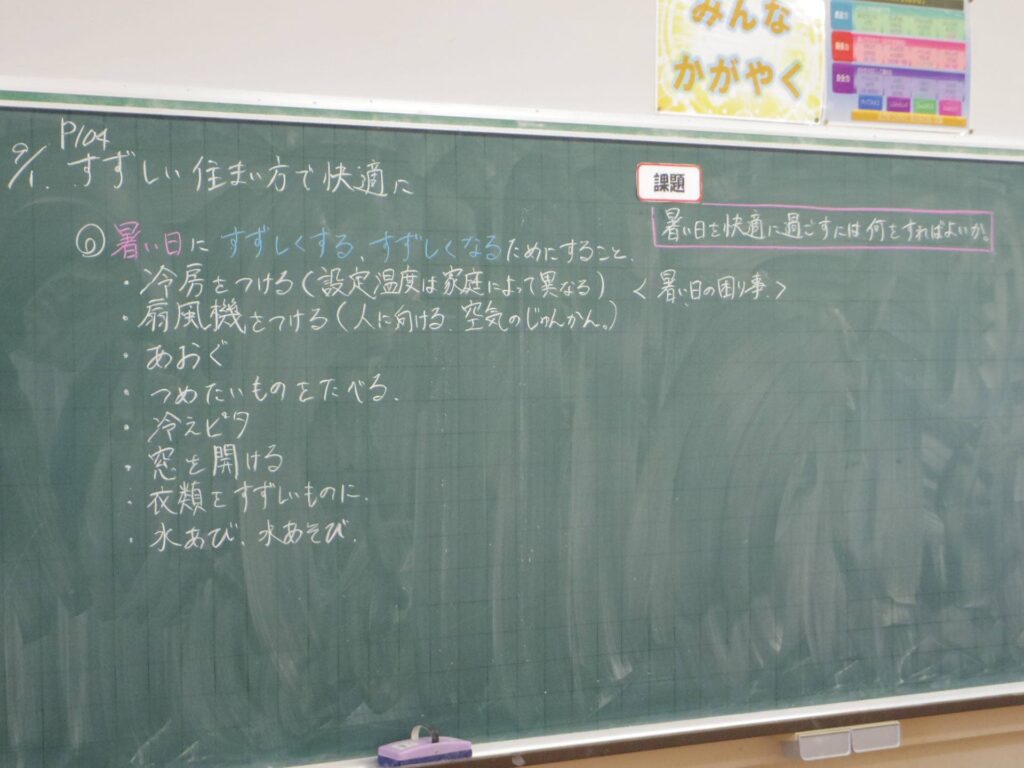 みんな
かがやく
P104
9/1. すずしい住まい方で快適に
◎暑い日にすずしくする、すずしくなるためにすること.
・冷房をつける(設定温度は家庭によって異なる)
・扇風機をつける(人に向ける.空気のじゅんかん。)
・あおぐ
・つめたいものをたべる.
・冷えピタ
・窓を開ける
・衣類をすずしいものに.
・水あび、水あそび.
課題
暑い日を快適に過ごすには何をすればよいか。
<暑い日の困り事.>